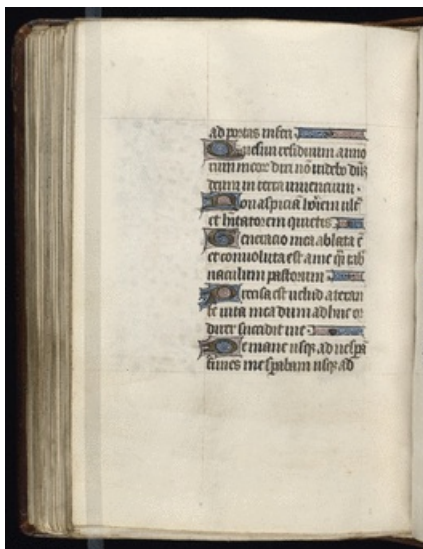 ad portas inferi
Quesiui residuum anno
rum meor̄ dixi nō uidebo dn̄m
deum in terra uiuencium.
Non aspiciā hoīem ultͣ
et hītatorem quietis
Generacio mea ablata ē
et conuoluta est a me q̄i tab
naculum pastorum
Precisa est uelud a texen
te uita mea dum adhuc or
direr succidit me
De mane usqꝫ ad uesꝑā
finies me speabam usqꝫ ad